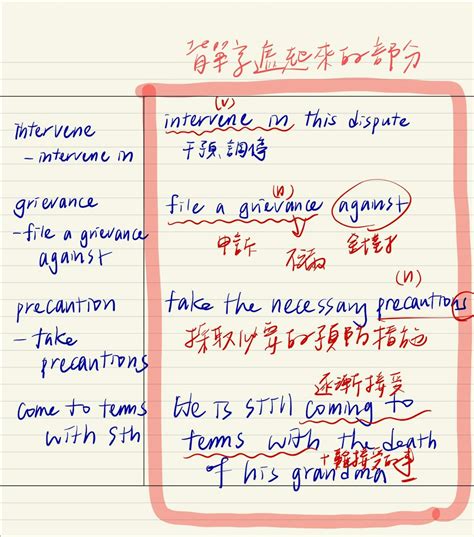 背單字遮起來的部分
(v)
intervene
intervene in this dispute
- intervene in
干預 調停
(n)
grievance
file a grievance against
- file a grievance against
申訴 不滿 針對
(n)
precaution
take the necessary precautions
- take precautions
採取必要的預防措施
逐漸接受
come to terms with sth
He is still coming to
terms with the death
+難接受的事
of his grandma